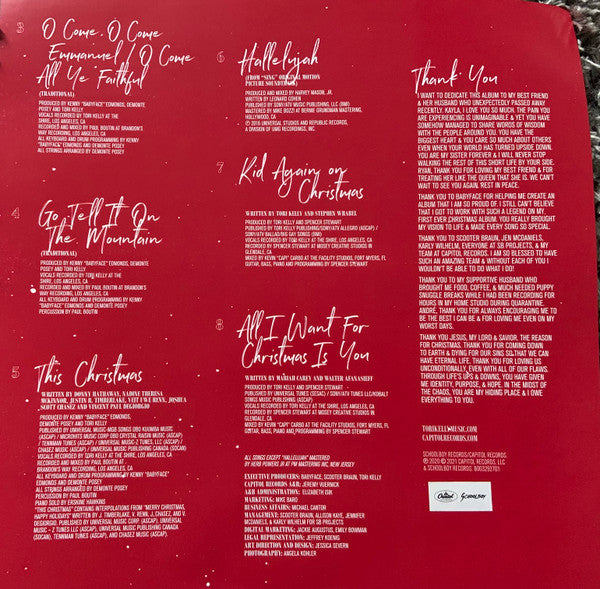 3
O Come, O Come
Emmanuel / O Come
All Ye Faithful
(TRADITIONAL)
PRODUCED BY KENNY "BABYFACE" EDMONDS, DEMONTE
POSEY AND TORI KELLY
VOCALS RECORDED BY TORI KELLY AT THE
SHIRE, LOS ANGELES, CA
RECORDED AND MIXED BY PAUL BOUTIN AT BRANDON'S
WAY RECORDING, LOS ANGELES, CA
ALL KEYBOARD AND DRUM PROGRAMMING BY KENNY
"BABYFACE" EDMONDS AND DEMONTE POSEY
ALL STRINGS ARRANGED BY DEMONTE POSEY
4
Go Tell It On
The Mountain
(TRADITIONAL)
PRODUCED BY KENNY "BABYFACE" EDMONDS, DEMONTE
POSEY AND TORI KELLY
VOCALS RECORDED BY TORI KELLY AT THE
SHIRE, LOS ANGELES, CA
RECORDED AND MIXED BY PAUL BOUTIN AT BRANDON'S
WAY RECORDING, LOS ANGELES, CA
ALL KEYBOARD AND DRUM PROGRAMMING BY KENNY
"BABYFACE" EDMONDS AND DEMONTE POSEY
PERCUSSION BY PAUL BOUTIN
5
This Christmas
WRITTEN BY DONNY HATHAWAY, NADINE THERESA
MCKINNOR, JUSTIN R. TIMBERLAKE, VEIT I WE RENN, JOSHUA
SCOTT CHASEZ AND VINCENT PAUL DEGIORGIO
PRODUCED BY KENNY "BABYFACE" EDMONDS,
DEMONTE POSEY AND TORI KELLY
PUBLISHED BY UNIVERSAL MUSIC-MGB SONGS OBO KUUMBA MUSIC
(ASCAP) / MICROHITS MUSIC CORP OBO CRYSTAL RAISIN MUSIC (ASCAP)
/ TENNMAN TUNES (ASCAP) / UNIVERSAL MUSIC-Z TUNES, LLC (ASCAP) /
CHASEZ MUSIC (ASCAP) / UNIVERSAL MUSIC PUBLISHING CANADA (SOCAN)
VOCALS RECORDED BY TORI KELLY AT THE
SHIRE, LOS ANGELES, CA
RECORDED AND MIXED BY PAUL BOUTIN AT
BRANDON'S WAY RECORDING, LOS ANGELES, CA
ALL KEYBOARD AND DRUM PROGRAMMING BY KENNY "BABYFACE"
EDMONDS AND DEMONTE POSEY
ALL STRINGS ARRANGED BY DEMONTE POSEY
PERCUSSION BY PAUL BOUTIN
PIANO SOLO BY ERSKINE HAWKINS
"THIS CHRISTMAS" CONTAINS INTERPOLATIONS FROM "MERRY CHRISTMAS,
HAPPY HOLIDAYS" WRITTEN BY J. TIMBERLAKE, V. RENN, J. CHASEZ, AND V.
DEGIORGIO. PUBLISHED BY UNIVERSAL MUSIC CORP. (ASCAP), UNIVERSAL
MUSIC – Z TUNES LLC (ASCAP), UNIVERSAL MUSIC PUBLISHING CANADA
(SOCAN), TENNMAN TUNES (ASCAP), AND CHASEZ MUSIC (ASCAP).
6
Hallelujah
(FROM "SING" ORIGINAL MOTION
PICTURE SOUNDTRACK)
PRODUCED AND MIXED BY HARVEY MASON, JR.
WRITTEN BY LEONARD COHEN
PUBLISHED BY SONY/ATV MUSIC PUBLISHING, LLC (BMI)
MASTERED BY MIKE BOZZI AT BERNIE GRUNDMAN MASTERING,
HOLLYWOOD, CA
Ⓟ 2016 UNIVERSAL STUDIOS AND REPUBLIC RECORDS,
A DIVISION OF UMG RECORDINGS, INC.
7
Kid Again on
Christmas
WRITTEN BY TORI KELLY AND STEPHEN WRABEL
PRODUCED BY TORI KELLY AND SPENCER STEWART
PUBLISHED BY TORI KELLY PUBLISHING/SONY/ATV ALLEGRO (ASCAP) /
SONY/ATV BALLAD/BIG GAY SONGS (BMI)
VOCALS RECORDED BY TORI KELLY AT THE SHIRE, LOS ANGELES, CA
RECORDED BY SPENCER STEWART AT MOSEY CREATIVE STUDIOS IN
GLENDALE, CA
MIXED BY KEVIN "CAPI" CARBO AT THE FACILITY STUDIOS, FORT MYERS, FL
GUITAR, BASS, PIANO AND PROGRAMMING BY SPENCER STEWART
8
All I Want For
Christmas Is You
WRITTEN BY MARIAH CAREY AND WALTER AFANASIEFF
PRODUCED BY TORI KELLY AND SPENCER STEWART
PUBLISHED BY UNIVERSAL TUNES (SESAC) / SONY/ATV TUNES LLC/KOBALT
SONGS MUSIC PUBLISHING (ASCAP)
VOCALS RECORDED BY TORI KELLY AT THE SHIRE, LOS ANGELES, CA
RECORDED BY SPENCER STEWART AT MOSEY CREATIVE STUDIOS IN
GLENDALE, CA
MIXED BY KEVIN "CAPI" CARBO AT THE FACILITY STUDIOS, FORT MYERS, FL
GUITAR, BASS, PIANO, AND PROGRAMMING BY SPENCER STEWART
ALL SONGS EXCEPT "HALLELUJAH" MASTERED
BY HERB POWERS JR AT PM MASTERING INC, NEW JERSEY
EXECUTIVE PRODUCERS: BABYFACE, SCOOTER BRAUN, TORI KELLY
CAPITOL RECORDS A&R: JEREMY VUERNICK
A&R ADMINISTRATION: ELIZABETH ISIK
MARKETING: MIKE DARO
BUSINESS AFFAIRS: MICHAEL CARTER
MANAGEMENT: SCOOTER BRAUN, ALLISON KAYE, JENNIFER
MCDANIELS, & KARLY WILHELM FOR SB PROJECTS
DIGITAL MARKETING: JACKIE AUGUSTUS, EMILY BOWMAN
LEGAL REPRESENTATION: JEFFREY KOENIG
ART DIRECTION AND DESIGN: JESSICA SEVERN
PHOTOGRAPHY: ANGELA KOHLER
Thank You
I WANT TO DEDICATE THIS ALBUM TO MY BEST FRIEND
& HER HUSBAND WHO UNEXPECTEDLY PASSED AWAY
RECENTLY. KAYLA, I LOVE YOU SO MUCH. THE PAIN YOU
ARE EXPERIENCING IS UNIMAGINABLE & YET YOU HAVE
SOMEHOW MANAGED TO SHARE WORDS OF WISDOM
WITH THE PEOPLE AROUND YOU. YOU HAVE THE
BIGGEST HEART & YOU CARE SO MUCH ABOUT OTHERS
EVEN WHEN YOUR WORLD HAS TURNED UPSIDE DOWN.
YOU ARE MY SISTER FOREVER & I WILL NEVER STOP
WALKING THE REST OF THIS SHORT LIFE BY YOUR SIDE.
RYAN, THANK YOU FOR LOVING MY BEST FRIEND & FOR
TREATING HER LIKE THE QUEEN THAT SHE IS. WE CAN'T
WAIT TO SEE YOU AGAIN. REST IN PEACE.
THANK YOU TO BABYFACE FOR HELPING ME CREATE AN
ALBUM THAT I AM SO PROUD OF. I STILL CAN'T BELIEVE
THAT I GOT TO WORK WITH SUCH A LEGEND ON MY
FIRST EVER CHRISTMAS ALBUM. YOU REALLY BROUGHT
MY VISION TO LIFE & MADE EVERY SONG SO SPECIAL.
THANK YOU TO SCOOTER BRAUN, JEN MCDANIELS,
KARLY WILHELM, EVERYONE AT SB PROJECTS, & MY
TEAM AT CAPITOL RECORDS. I AM SO BLESSED TO HAVE
SUCH AN AMAZING TEAM & WITHOUT EACH OF YOU I
WOULDN'T BE ABLE TO DO WHAT I DO!
THANK YOU TO MY SUPPORTIVE HUSBAND WHO
BROUGHT ME FOOD, COFFEE, & MUCH NEEDED PUPPY
SNUGGLE BREAKS WHILE I HAD BEEN RECORDING FOR
HOURS IN MY HOME STUDIO DURING QUARANTINE.
ANDRÉ, THANK YOU FOR ALWAYS ENCOURAGING ME TO
BE THE BEST I CAN BE & FOR LOVING ME EVEN ON MY
WORST DAYS.
THANK YOU JESUS, MY LORD & SAVIOR, THE REASON
FOR CHRISTMAS. THANK YOU FOR COMING DOWN
TO EARTH & DYING FOR OUR SINS SO THAT WE CAN
HAVE ETERNAL LIFE. THANK YOU FOR LOVING US
UNCONDITIONALLY, EVEN WITH ALL OF OUR FLAWS.
THROUGH LIFE'S UPS & DOWNS, YOU HAVE GIVEN
ME IDENTITY, PURPOSE, & HOPE. IN THE MIDST OF
THE CHAOS, YOU ARE MY HIDING PLACE & I OWE
EVERYTHING TO YOU.
TORIKELLYMUSIC.COM
CAPITOLRECORDS.COM
SCHOOLBOY RECORDS/CAPITOL RECORDS
Ⓟ 2020 © 2021 CAPITOL RECORDS, LLC
& SCHOOLBOY RECORDS. B003292701
Capitol
SCHOOLBOY